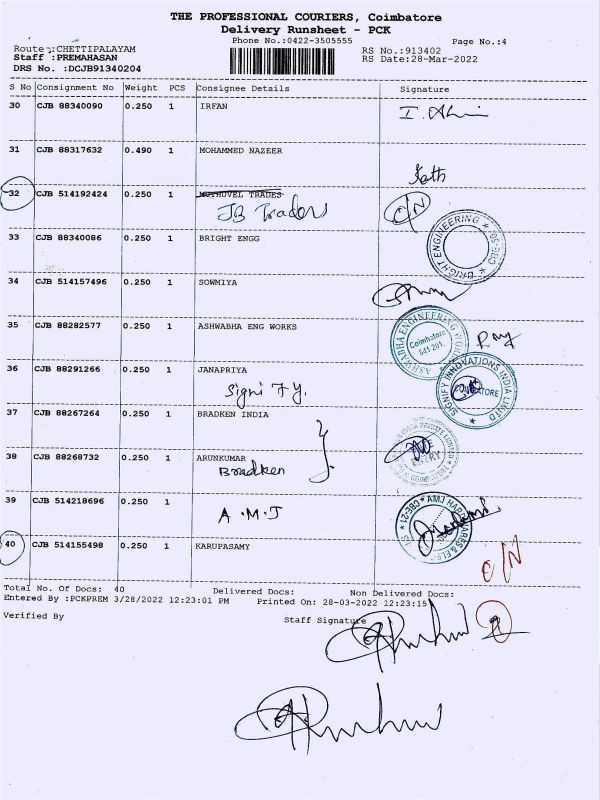 THE PROFESSIONAL COURIERS, Coimbatore
Delivery Runsheet - PCK
Phone No.:0422-3505555 Page No.:4
Route :CHETTIPALAYAM RS No.:913402
Staff :PREMAHASAN RS Date:28-Mar-2022
DRS No. :DCJB91340204
S No Consignment No Weight PCS Consignee Details Signature
30 CJB 88340090 0.250 1 IRFAN
31 CJB 88317632 0.490 1 MOHAMMED NAZEER
32 CJB 514192424 0.250 1 MUTHUVEL TRADES
JB Traders O/N
33 CJB 88340086 0.250 1 BRIGHT ENGG
BRIGHT ENGINEERING
34 CJB 514157496 0.250 1 SOWMIYA
35 CJB 88282577 0.250 1 ASHWABHA ENG WORKS
ASHWABHA ENGINEERING Coimbatore 641 201.
36 CJB 88291266 0.250 1 JANAPRIYA
Signi FY.
SIGNIFY INNOVATIONS INDIA LIMITED COIMBATORE
37 CJB 88267264 0.250 1 BRADKEN INDIA
38 CJB 88268732 0.250 1 ARUNKUMAR
Bradken
39 CJB 514218696 0.250 1
A.M.J
AMJ HARDWARES & CBE-21
40 CJB 514155498 0.250 1 KARUPASAMY
O/N
Total No. Of Docs: 40 Delivered Docs: Non Delivered Docs:
Entered By :PCKPREM 3/28/2022 12:23:01 PM Printed On: 28-03-2022 12:23:15
Verified By Staff Signature
2